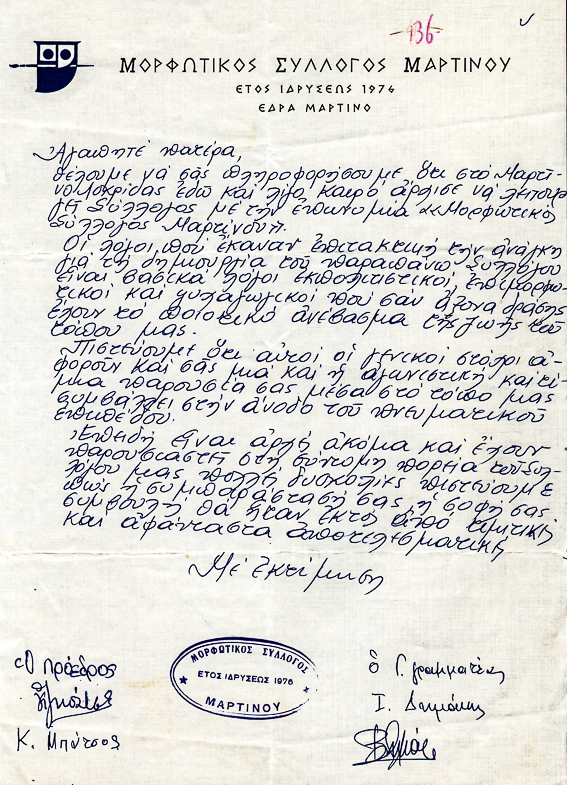 -936-
ΜΟΡΦΩΤΙΚΟΣ ΣΥΛΛΟΓΟΣ ΜΑΡΤΙΝΟΥ
ΕΤΟΣ ΙΔΡΥΣΕΩΣ 1976
ΕΔΡΑ ΜΑΡΤΙΝΟ
Ἀγαπητέ πατέρα,
θέλουμε νά σᾶς πληροφορήσουμε, ὅτι στό Μαρτῖ-
νο Λοκρίδας ἐδῶ καί λίγο καιρό ἄρχισε νά λειτουρ-
γεῖ Σύλλογος μέ τήν ἐπωνυμία «Μορφωτικός
Σύλλογος Μαρτίνου».
Οἱ λόγοι πού ἔκαναν ἐπιτακτική τήν ἀνάγκη
γιά τή δημιουργία τοῦ παραπάνω Συλλόγου
εἶναι βασικά λόγοι ἐκπολιτιστικοί, ἐπιμορφω-
τικοί καί ψυχαγωγικοί πού σάν ἄξονα δράσης
ἔχουν τό ποιοτικό ἀνέβασμα τῆς ζωῆς τοῦ
τόπου μας.
Πιστεύουμε ὅτι αὐτοί οἱ γενικοί στόχοι ἀ-
φοροῦν καί σᾶς μιά καί ἡ ἀγωνιστική καί τί-
μια παρουσία σας μέσα στό τόπο μας
συμβάλλει στήν ἄνοδο τοῦ πνευματικοῦ
ἐπιπέδου.
Ἐπειδή εἶναι ἀρχή ἀκόμα καί ἔχουν
παρουσιαστεῖ στή σύντομη πορεία τοῦ Συλ-
λόγου μας πολλές δυσκολίες πιστεύουμε
πώς ἡ συμπαράστασή σας, ἡ σοφή σας
συμβουλή θά ἦταν ἐκτός ἀπό τιμητική
καί ἀφάνταστα ἀποτελεσματική
Μέ ἐκτίμηση
Ὁ πρόεδρος
Κ. Μπάτσος
ΜΟΡΦΩΤΙΚΟΣ ΣΥΛΛΟΓΟΣ
ΕΤΟΣ ΙΔΡΥΣΕΩΣ 1976
ΜΑΡΤΙΝΟΥ
ὁ Γ. γραμματέας
Ι.